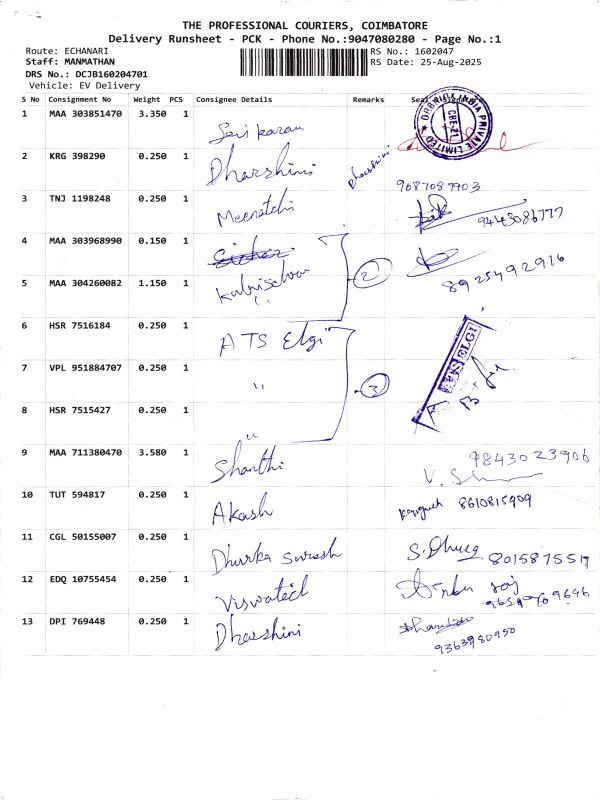 THE PROFESSIONAL COURIERS, COIMBATORE
Delivery Runsheet - PCK - Phone No.:9047080280 - Page No.:1
Route: ECHANARI
RS No.: 1602047
Staff: MANMATHAN
RS Date: 25-Aug-2025
DRS No.: DCJB160204701
Vehicle: EV Delivery
S No Consignment No Weight PCS Consignee Details Remarks
1 MAA 303851470 3.350 1 Sri karan
PRIVATE LIMITED
CBE-21
2 KRG 398290 0.250 1 Dharshini Dharshini 9087087903
3 TNJ 1198248 0.250 1 Meenatchi 9443086777
4 MAA 303968990 0.150 1
5 MAA 304260082 1.150 1 " 2 8925492916
6 HSR 7516184 0.250 1 ATS Elgi
ATS ELGI
7 VPL 951884707 0.250 1 " 3
8 HSR 7515427 0.250 1 "
9 MAA 711380470 3.580 1 Shanthi 9843023906
10 TUT 594817 0.250 1 Akash 8610815909
11 CGL 50155007 0.250 1 Dhurka Suresh 8015875517
12 EDQ 10755454 0.250 1 Viswatech
13 DPI 769448 0.250 1 Dharshini 9363980950